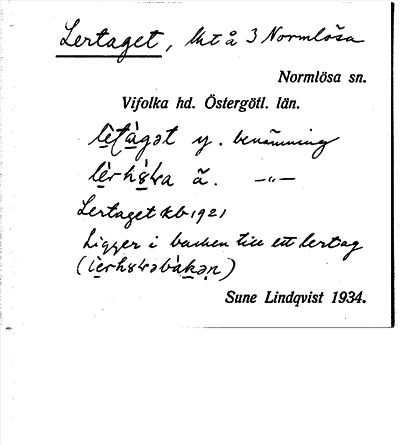 Lertaget, lht å 3 Normlösa
Normlösa sn.
Vifolka hd. Östergötl. län.
y. benämning
ä. —"—
Lertaget kb 1921
Ligger i backen till ett lertag
Sune Lindqvist 1934.